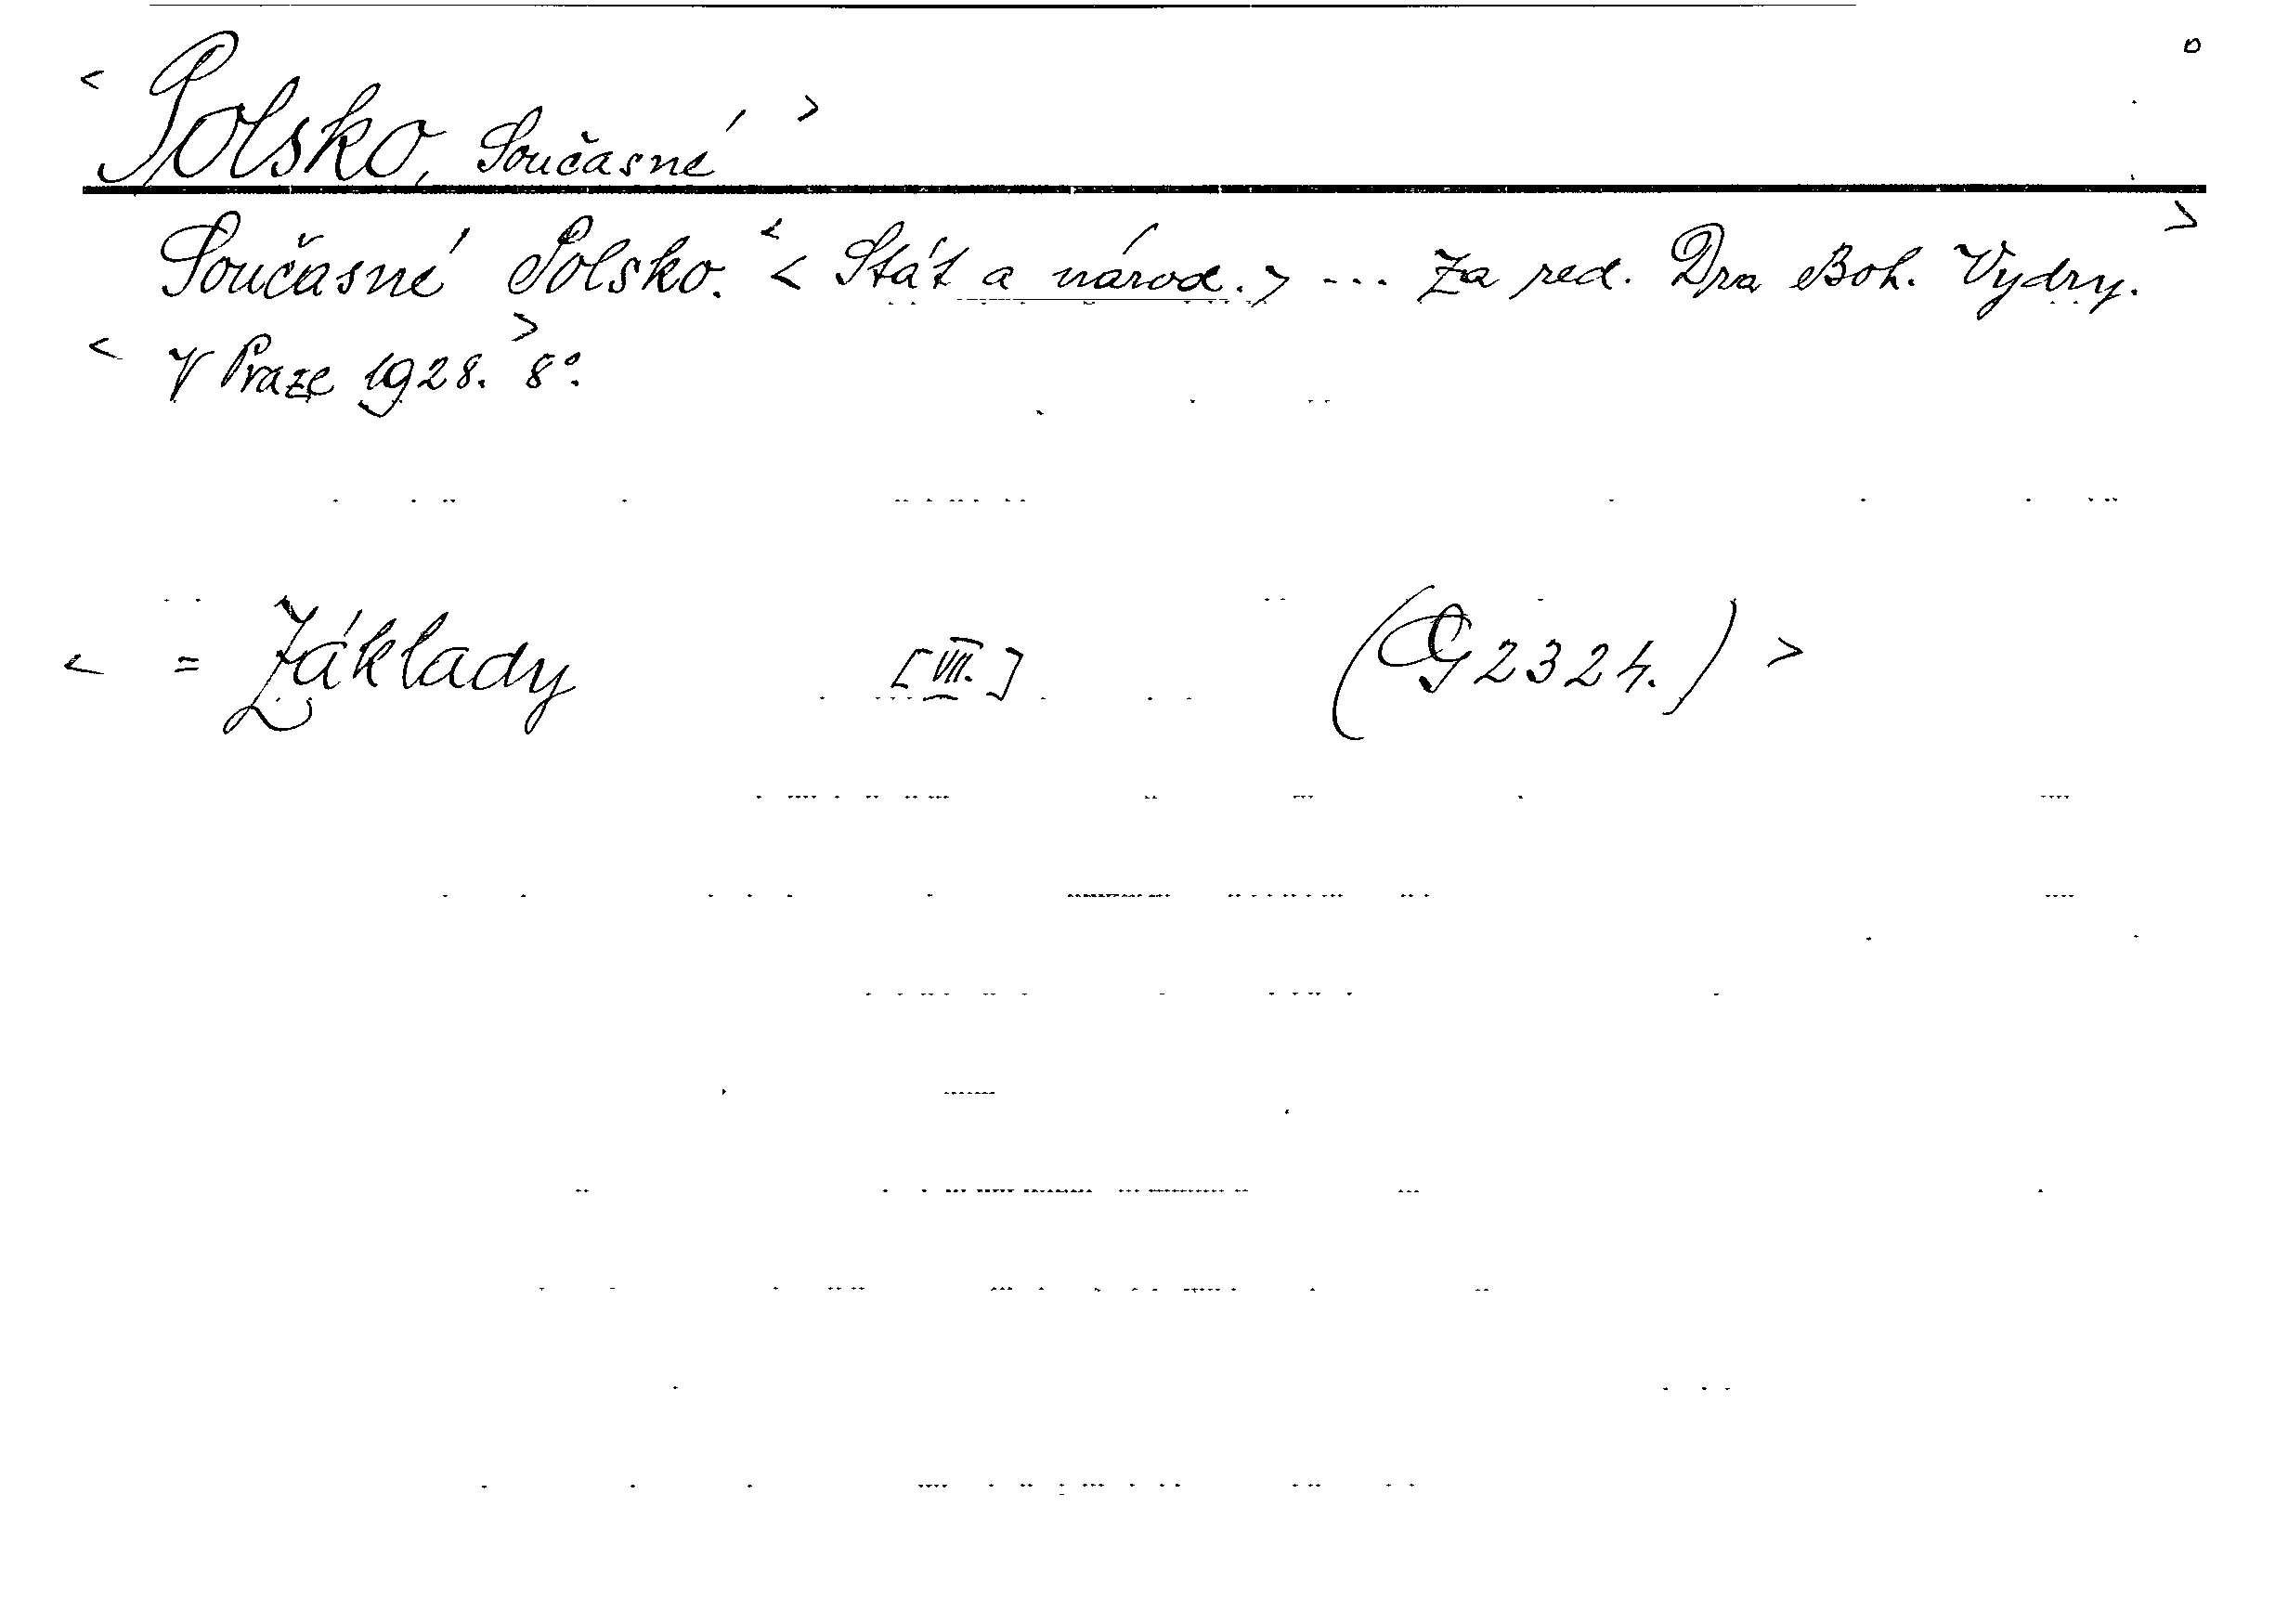 < Polsko, Současné >
Současné Polsko. < < Stát a národ. > ... Za red. Dra Boh. Vydry. >
< V Praze 1928. > 8°.
< = Základy [VII.] (G 2324.) >